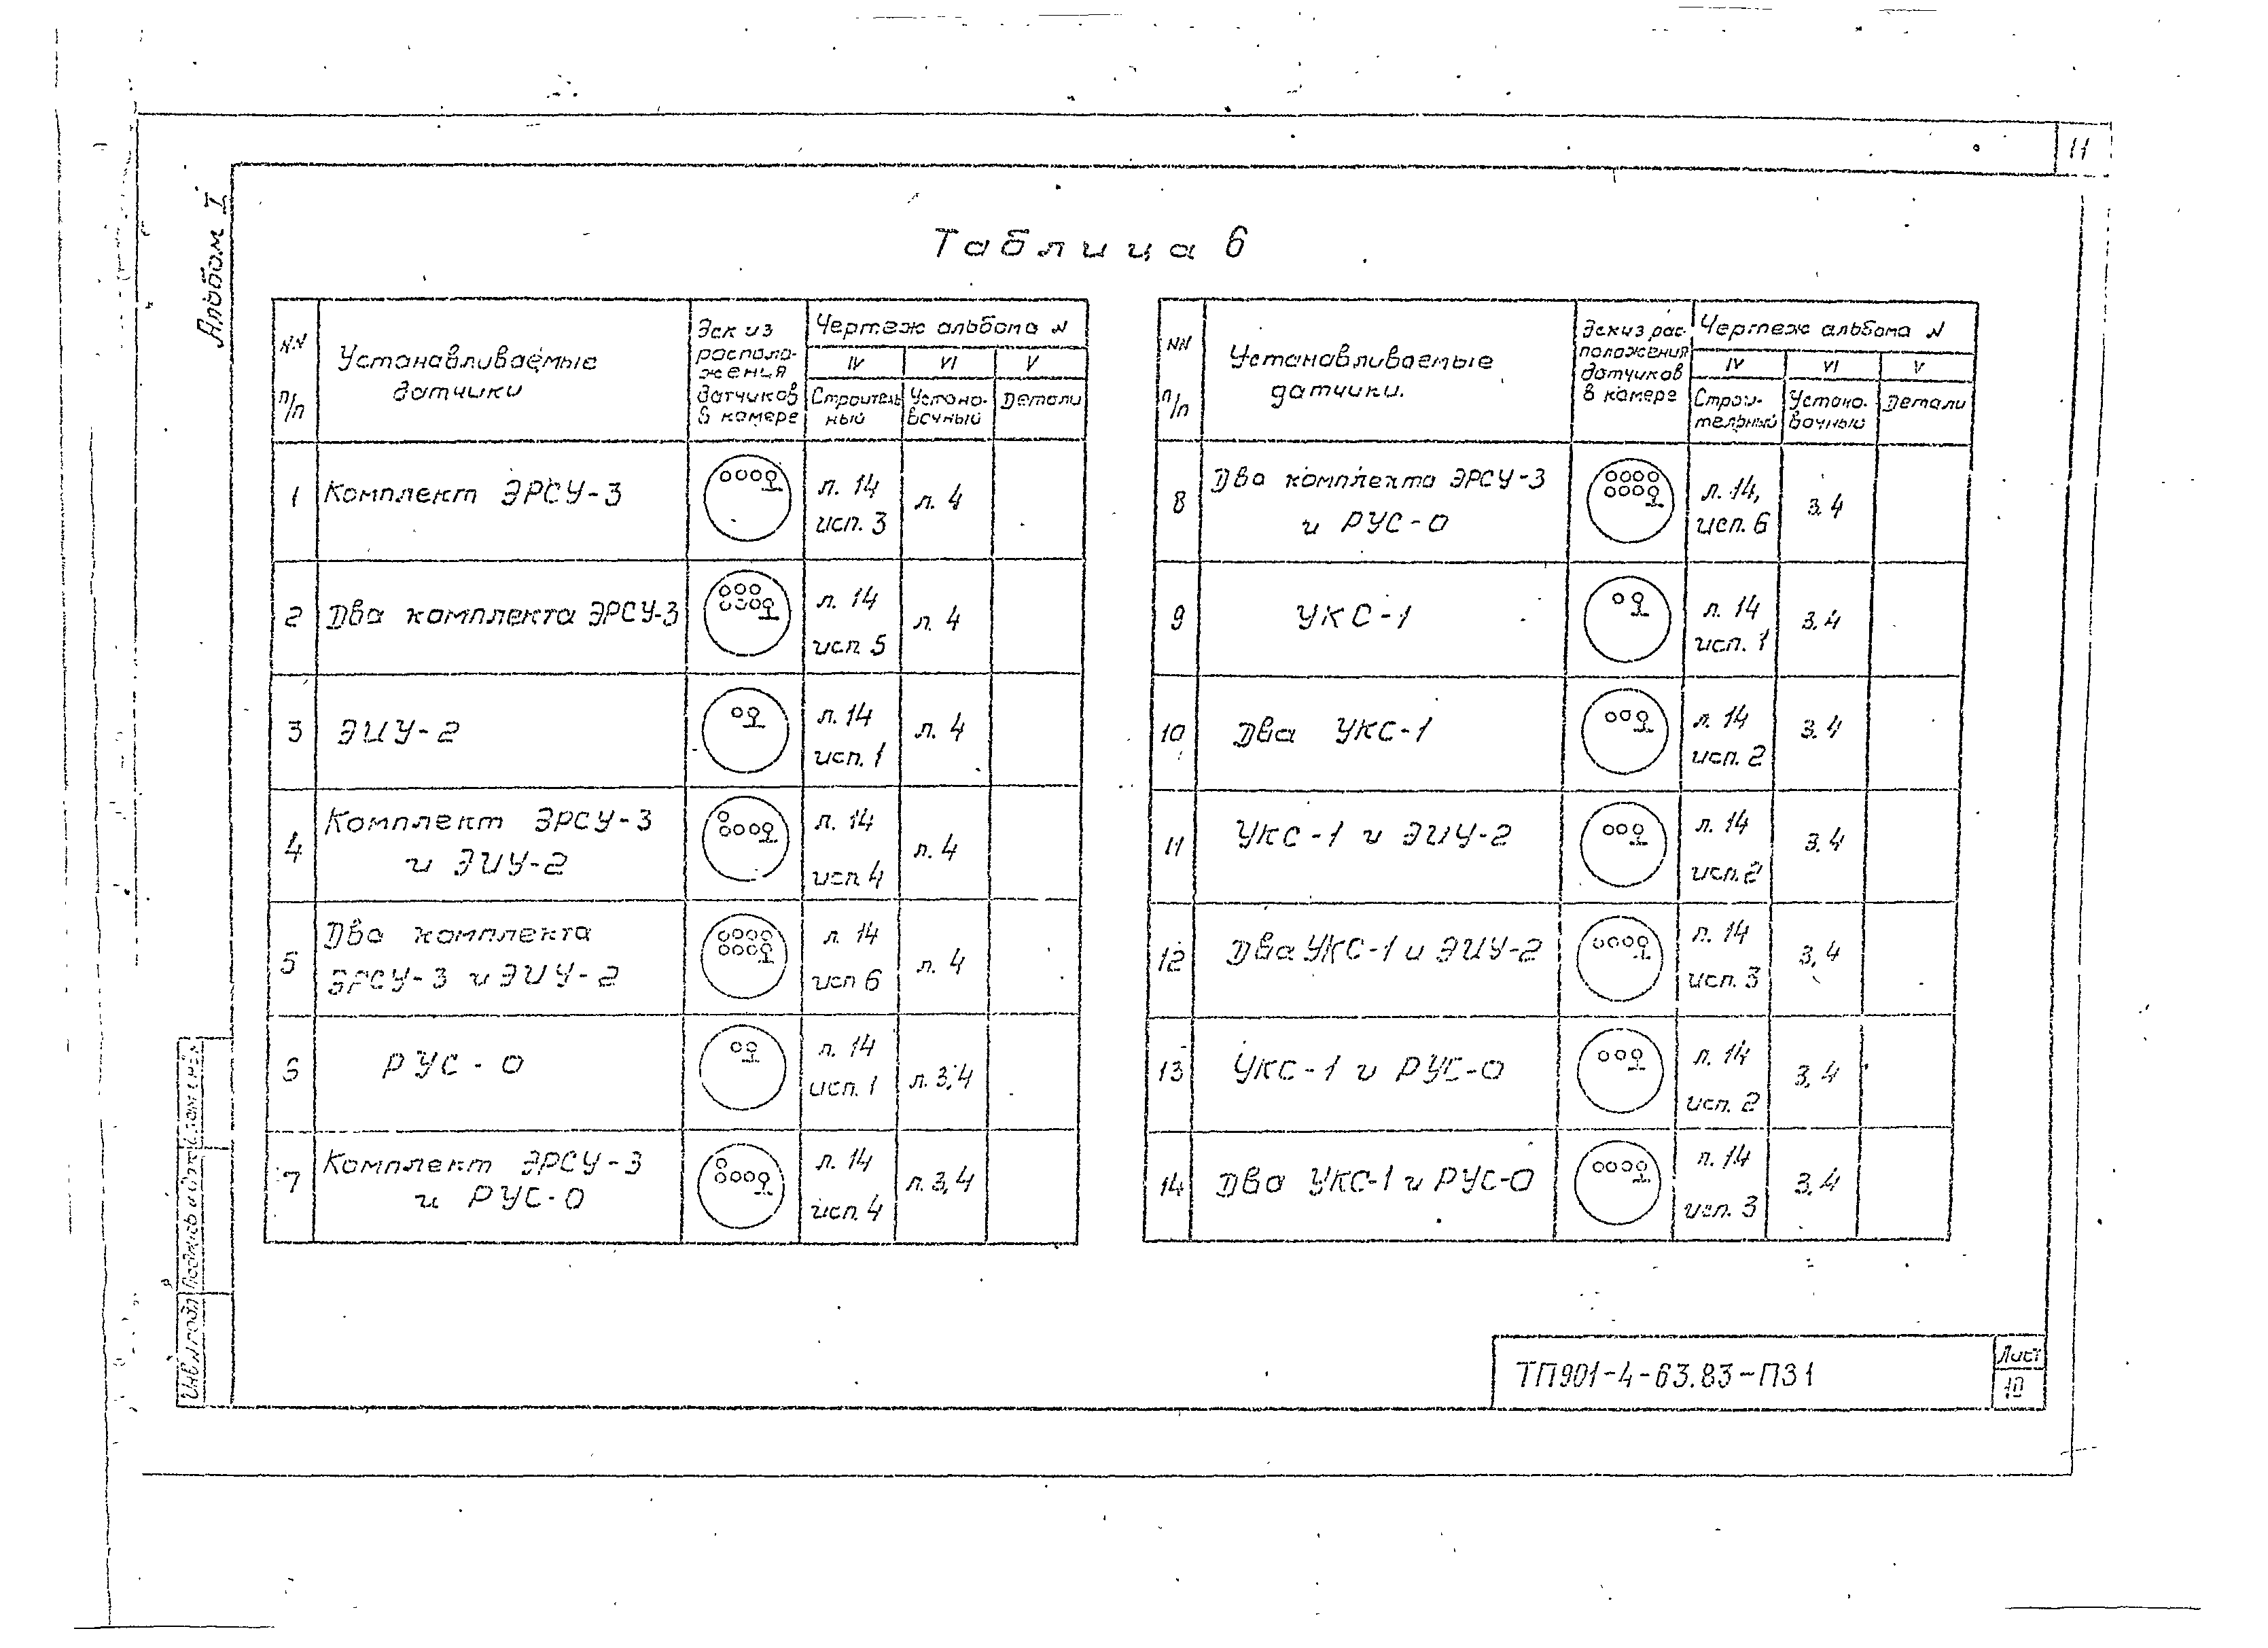 11
Альбом I
Таблица 6
NN п/п
Устанавливаемые
датчики
Эскиз
располо-
жения
датчиков
в камере
Чертеж альбома N
IV
VI
V
Строитель
ный
Устано-
вочный
Детали
1
Комплект ЭРСУ-3
л. 14
исп. 3
л. 4
2
Два комплекта ЭРСУ-3
л. 14
исп 5
л. 4
3
ЭИУ-2
л. 14
исп. 1
л. 4
4
Комплект ЭРСУ-3
и ЭИУ-2
л. 14
исп 4
л. 4
5
Два комплекта
ЭРСУ-3 и ЭИУ-2
л 14
исп 6
л. 4
6
РУС-0
л. 14
исп. 1
л. 3,4
7
Комплект ЭРСУ-3
и РУС-0
л. 14
исп. 4
л. 3,4
NN п/п
Устанавливаемые
датчики.
Эскиз рас-
положения
датчиков
в камере
Чертеж альбома N
IV
VI
V
Строи-
тельный
Устано-
вочный
Детали
8
Два комплекта ЭРСУ-3
и РУС-0
л. 14,
исп. 6
3.4
9
УКС-1
л. 14
исп. 1
3.4
10
Два УКС-1
л. 14
исп. 2
3.4
11
УКС-1 и ЭИУ-2
л. 14
исп. 2
3.4
12
Два УКС-1 и ЭИУ-2
л. 14
исп. 3
3,4
13
УКС-1 и РУС-0
л. 14
исп. 2
3,4
14
Два УКС-1 и РУС-0
л. 14
исп. 3
3,4
Инв.N подл
Подпись и дата
ТП901-4-63.83-ПЗ1
Лист
10